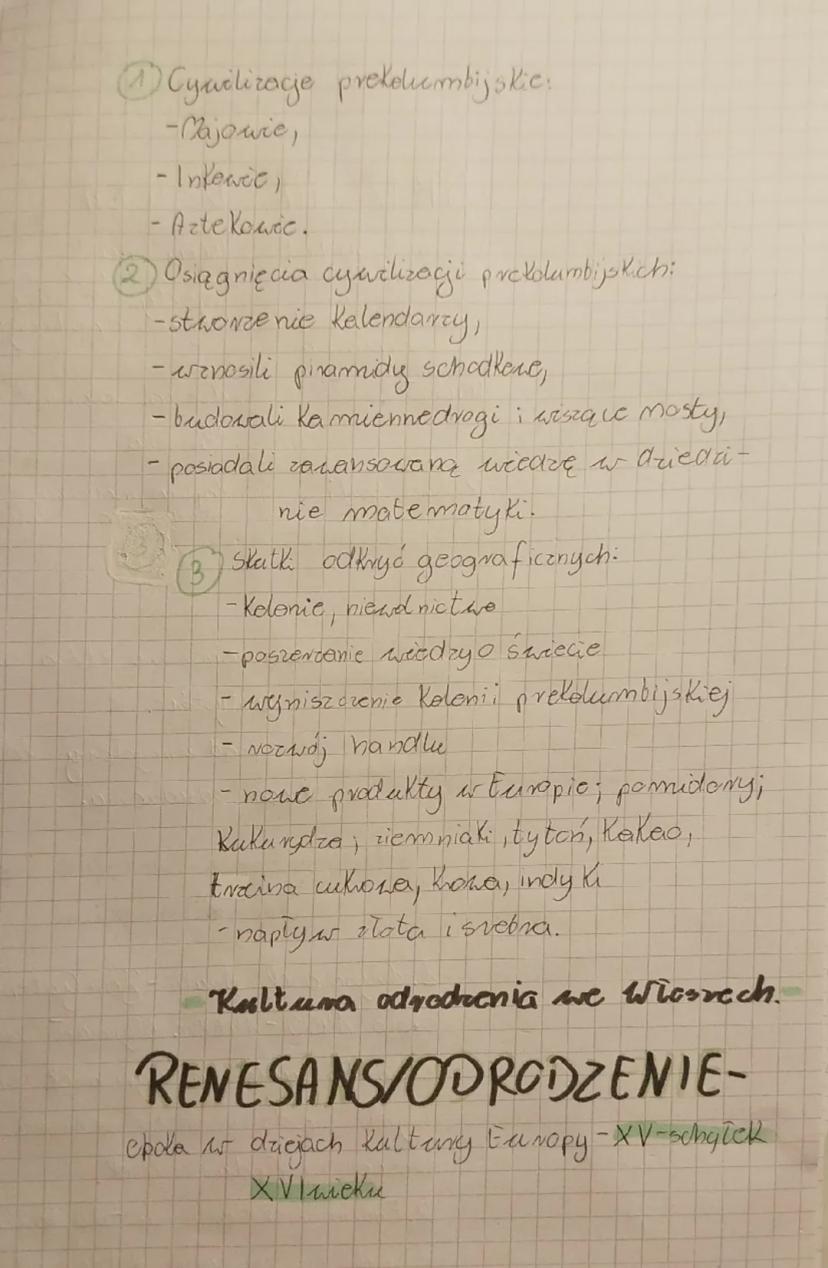 1 Cywilizacje prekolumbijskie:
- Majowie,
- Inkowie,
- Aztekowie.
2 Osiągnięcia cywilizacji prekolumbijskich:
- stworzenie kalendarzy,
- wznosili piramidy schodkowe,
- budowali kamienne drogi i wiszące mosty,
- posiadali zawansowaną wiedzę w dziedzi-
nie matematyki.
3 Skutki odkryć geograficznych:
- kolonie, niewolnictwo
- poszerzenie wiedzy o świecie
- wyniszczenie kolonii prekolumbijskiej
- rozwój handlu
- nowe produkty w Europie; pomidory;
kukurydza; ziemniaki, tytoń, kakao,
trzcina cukrowa, kawa, indyki
- napływ złota i srebra.
Kultura odrodzenia we Włoszech.
RENESANS/ODRODZENIE-
epoka w dziejach kultury Europy - XV-schyłek
XVI wieku